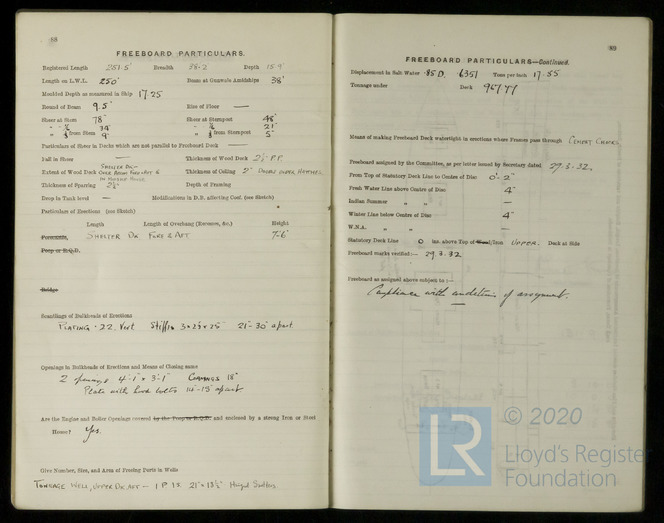 88
FREEBOARD PARTICULARS.
Registered Length 251.5' Breadth 38.2 Depth 15.9'
Length on L.W.L. 250' Beam at Gunwale Amidships 38'
Moulded Depth as measured in Ship 17.25
Round of Beam 9.5" Rise of Floor —
Sheer at Stem 78" Sheer at Sternpost 48"
" 39" " 21"
" from Stem 9" " from Sternpost 5"
Particulars of Sheer in Decks which are not parallel to Freeboard Deck —
Fall in Sheer — Thickness of Wood Deck 2½" P.P.
Extent of Wood Deck Over Thickness of Ceiling 2" Under Hatches
Thickness of Sparring 2½" Depth of Framing
Drop in Tank level — Modifications in D.B. affecting Coef. (see Sketch)
Particulars of Erections (see Sketch)
Length Length of Overhang (Recesses, &c.) Height
Forecastle, Shelter Dk Fore & Aft 7'-6"
Poop or R.Q.D.
Bridge
Scantlings of Bulkheads of Erections
Plating .22 Vert Stiffrs 21"-30" apart.
Openings in Bulkheads of Erections and Means of Closing same
2 openings 4'-1" x 3'-1" Comings 18"
Plate with hook bolts apart
Are the Engine and Boiler Openings covered by the Poop or R.Q.D. and enclosed by a strong Iron or Steel
House? Yes.
Give Number, Size, and Area of Freeing Ports in Wells
Tonnage Well, Upper Dk. Aft — 1 P 1 S. 21" x 13½" Hinged Shutters
89
FREEBOARD PARTICULARS—Continued.
Displacement in Salt Water .85D. 6351 Tons per inch 17.85
Tonnage under Deck 967.77
Means of making Freeboard Deck watertight in erections where Frames pass through Cement Chocks
Freeboard assigned by the Committee, as per letter issued by Secretary dated 29.3.32.
From Top of Statutory Deck Line to Centre of Disc 0'-2"
Fresh Water Line above Centre of Disc 4"
Indian Summer " " —
Winter Line below Centre of Disc 4"
W.N.A. " " —
Statutory Deck Line 0 ins. above Top of Wood/Iron Upper Deck at Side
Freeboard marks verified:— 29.3.32
Freeboard as assigned above subject to:—
Compliance with conditions of assignment.
LR © 2020
Lloyd's Register
Foundation